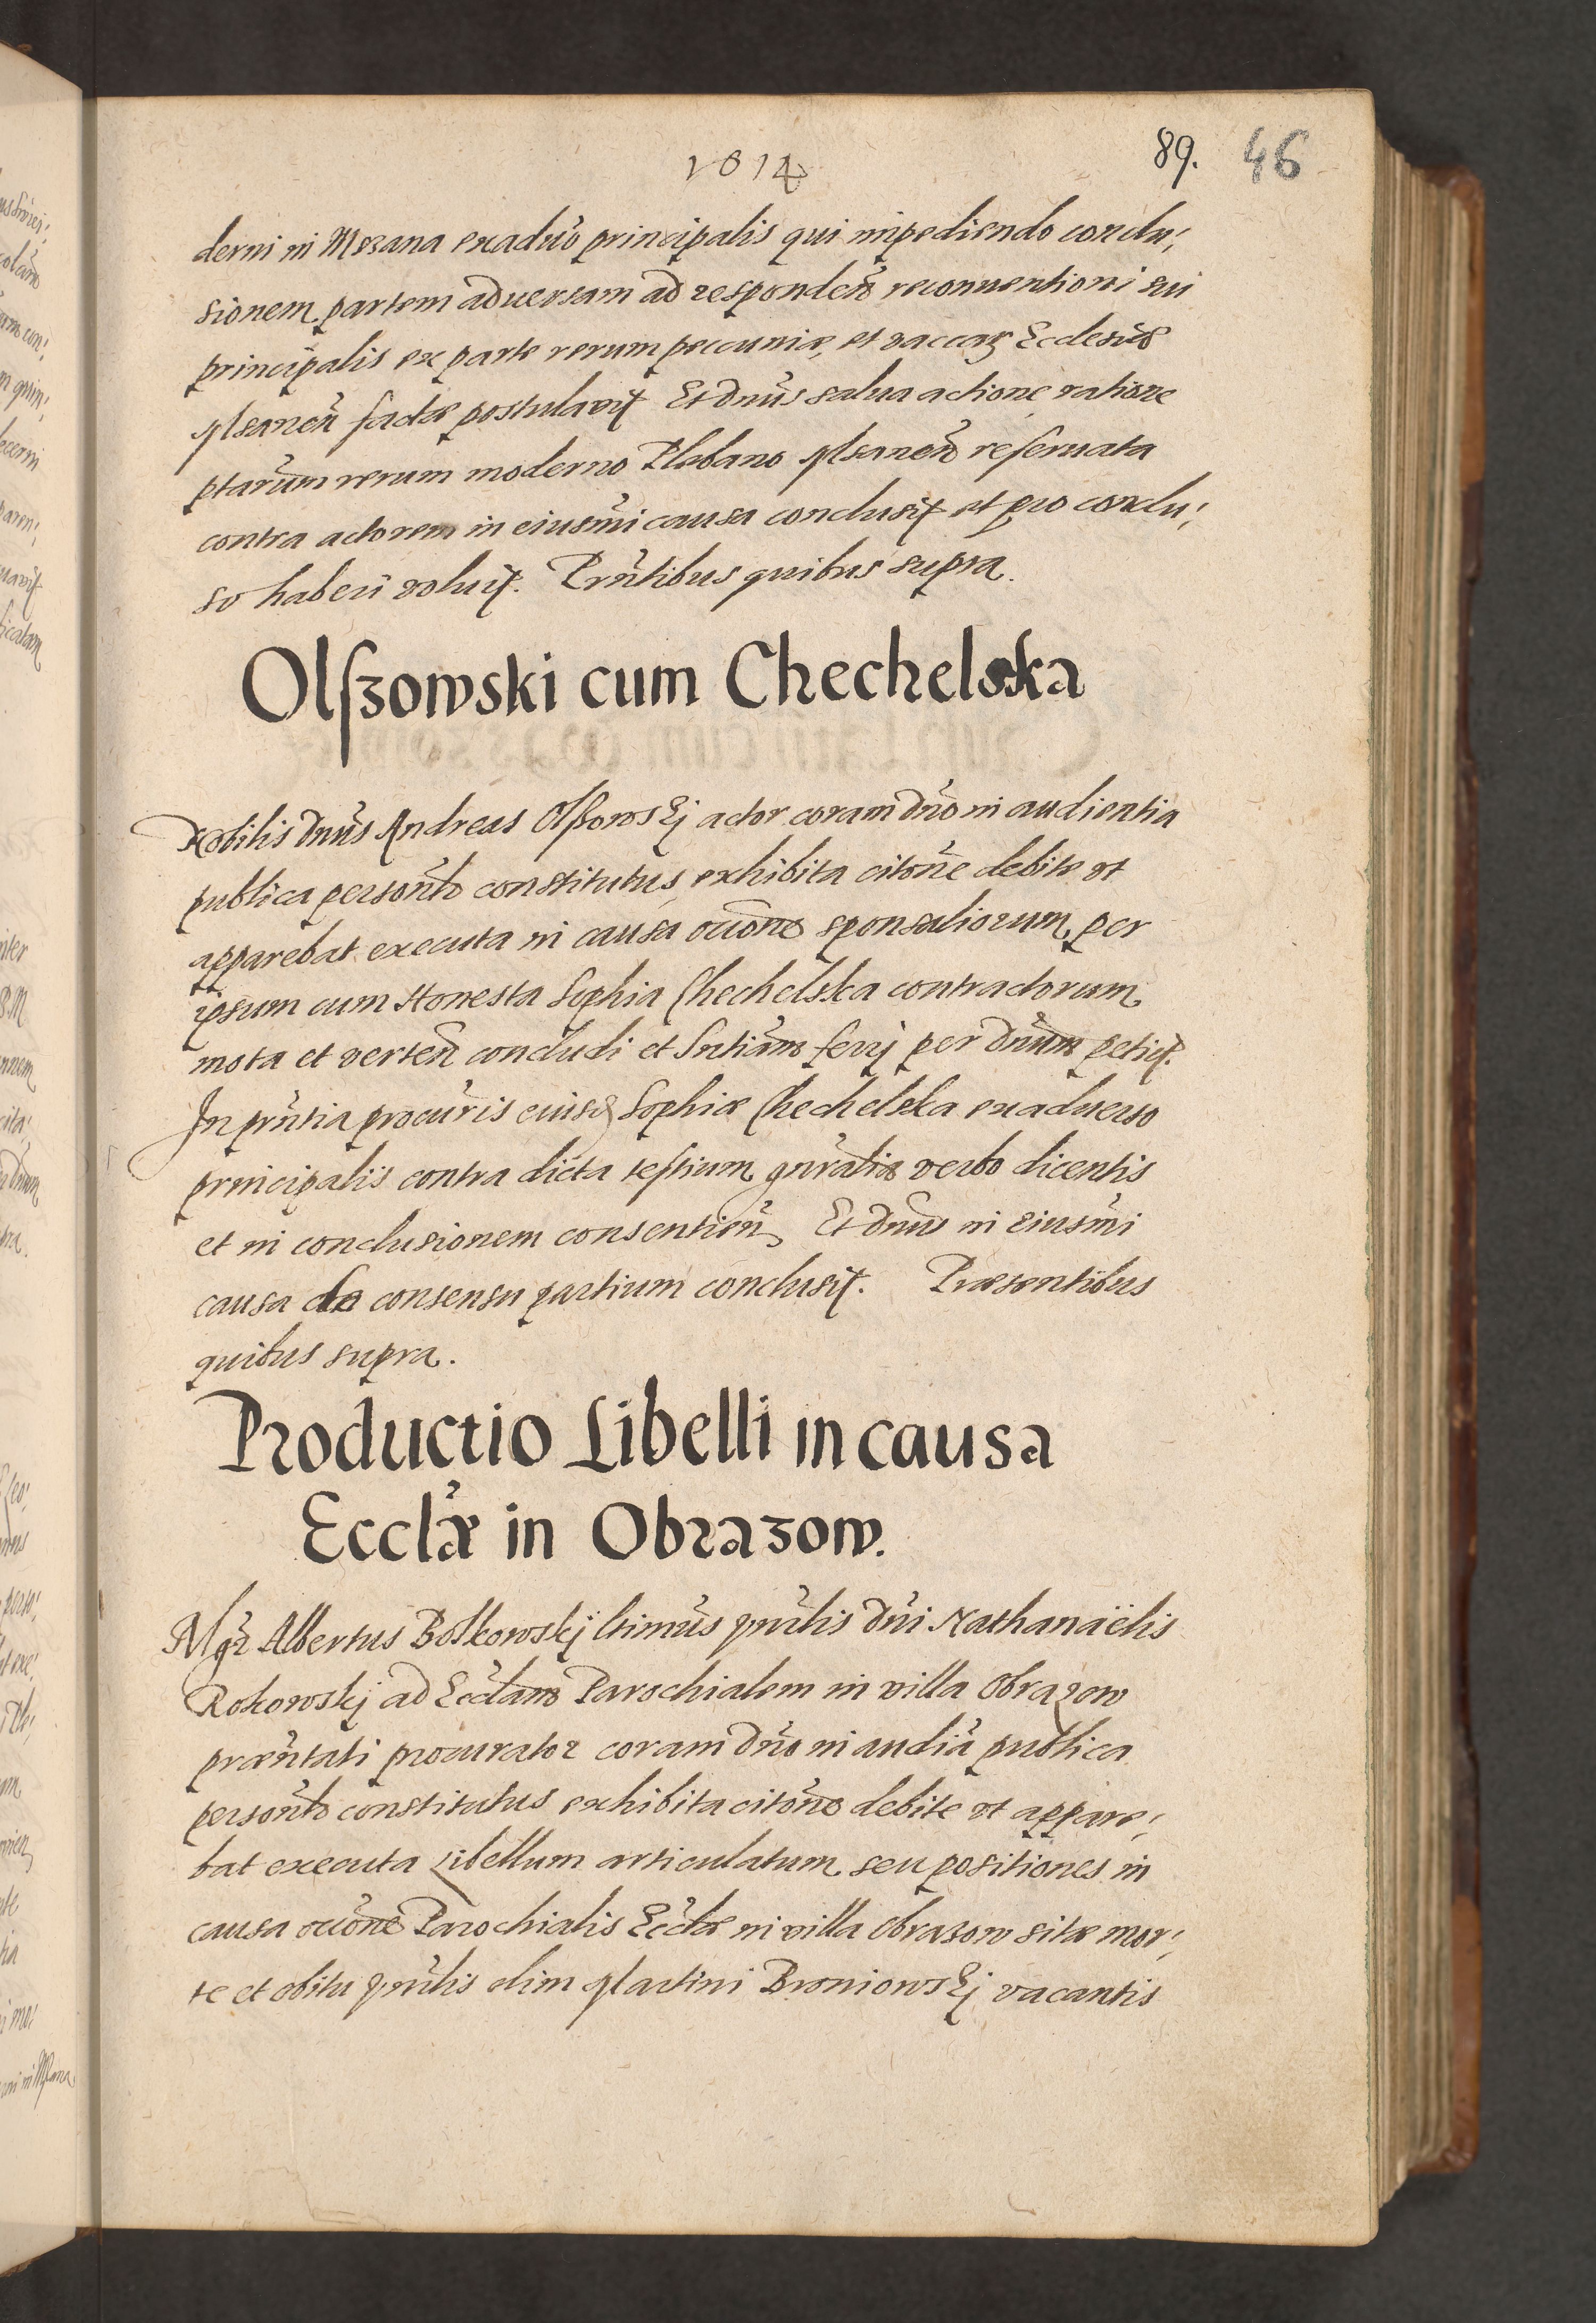 1614
89. 46
derni in Mszana exadũo principalis qui impediendo conclu,,
sionem partem aduersam ad respondeñ reconuentioni sui
principalis ex parte rerum pecuniæ, et vaccarꝫ Ecclesiæ
Msaneñ factæ postulavit Et Dnũs salua actione ratione
ptarũm rerum moderno Plebano Msaneñ reseruata
contra actorem in eiusmi causa conclusit et pro conclu,,
so haberi voluit. Prñtibus quibus supra.
Olſzowski cum Chechelska
Nobilis Dnũs Andreas Olßowskj actor coram Dño in audientia
publica personlr̃ constitutus, exhibita citõne debite vt
apparebat executa in causa ocõne sponsaliorum per
ipsum cum Honesta Sophia Chechelska contractorum
mota et verteñ concludi et Sntiãm ferrj per Dnũm petijt.
In prñtia procũris eiusd Sophiæ Chechelska exaduerso
principalis contra dicta testium gnrãlia verbo dicentis
et in conclusionem consentieñ Et Dnũs in eiusmi
causa de consensu partium conclusit. Præsentibus
quibus supra.
Productio Libelli in causa
Ecclæ in Obrazow.
Mgr̃ Albertus Bolkowskij ltimũs qnrlis Dñi Nathanaëlis
Rokowskj ad Ecclãm Parochialem in villa Obrazow
præñtati procurator coram Dño in audiã publica
personlr̃ constitutus exhibita citõne debite vt appare,,
bat executa Libellum articulatum seu positiones in
causa ocõne Parochialis Ecclæ in villa Obrazow sitæ mor,,
te et obitu qnrlis olim Martini Broniowskj vacantis